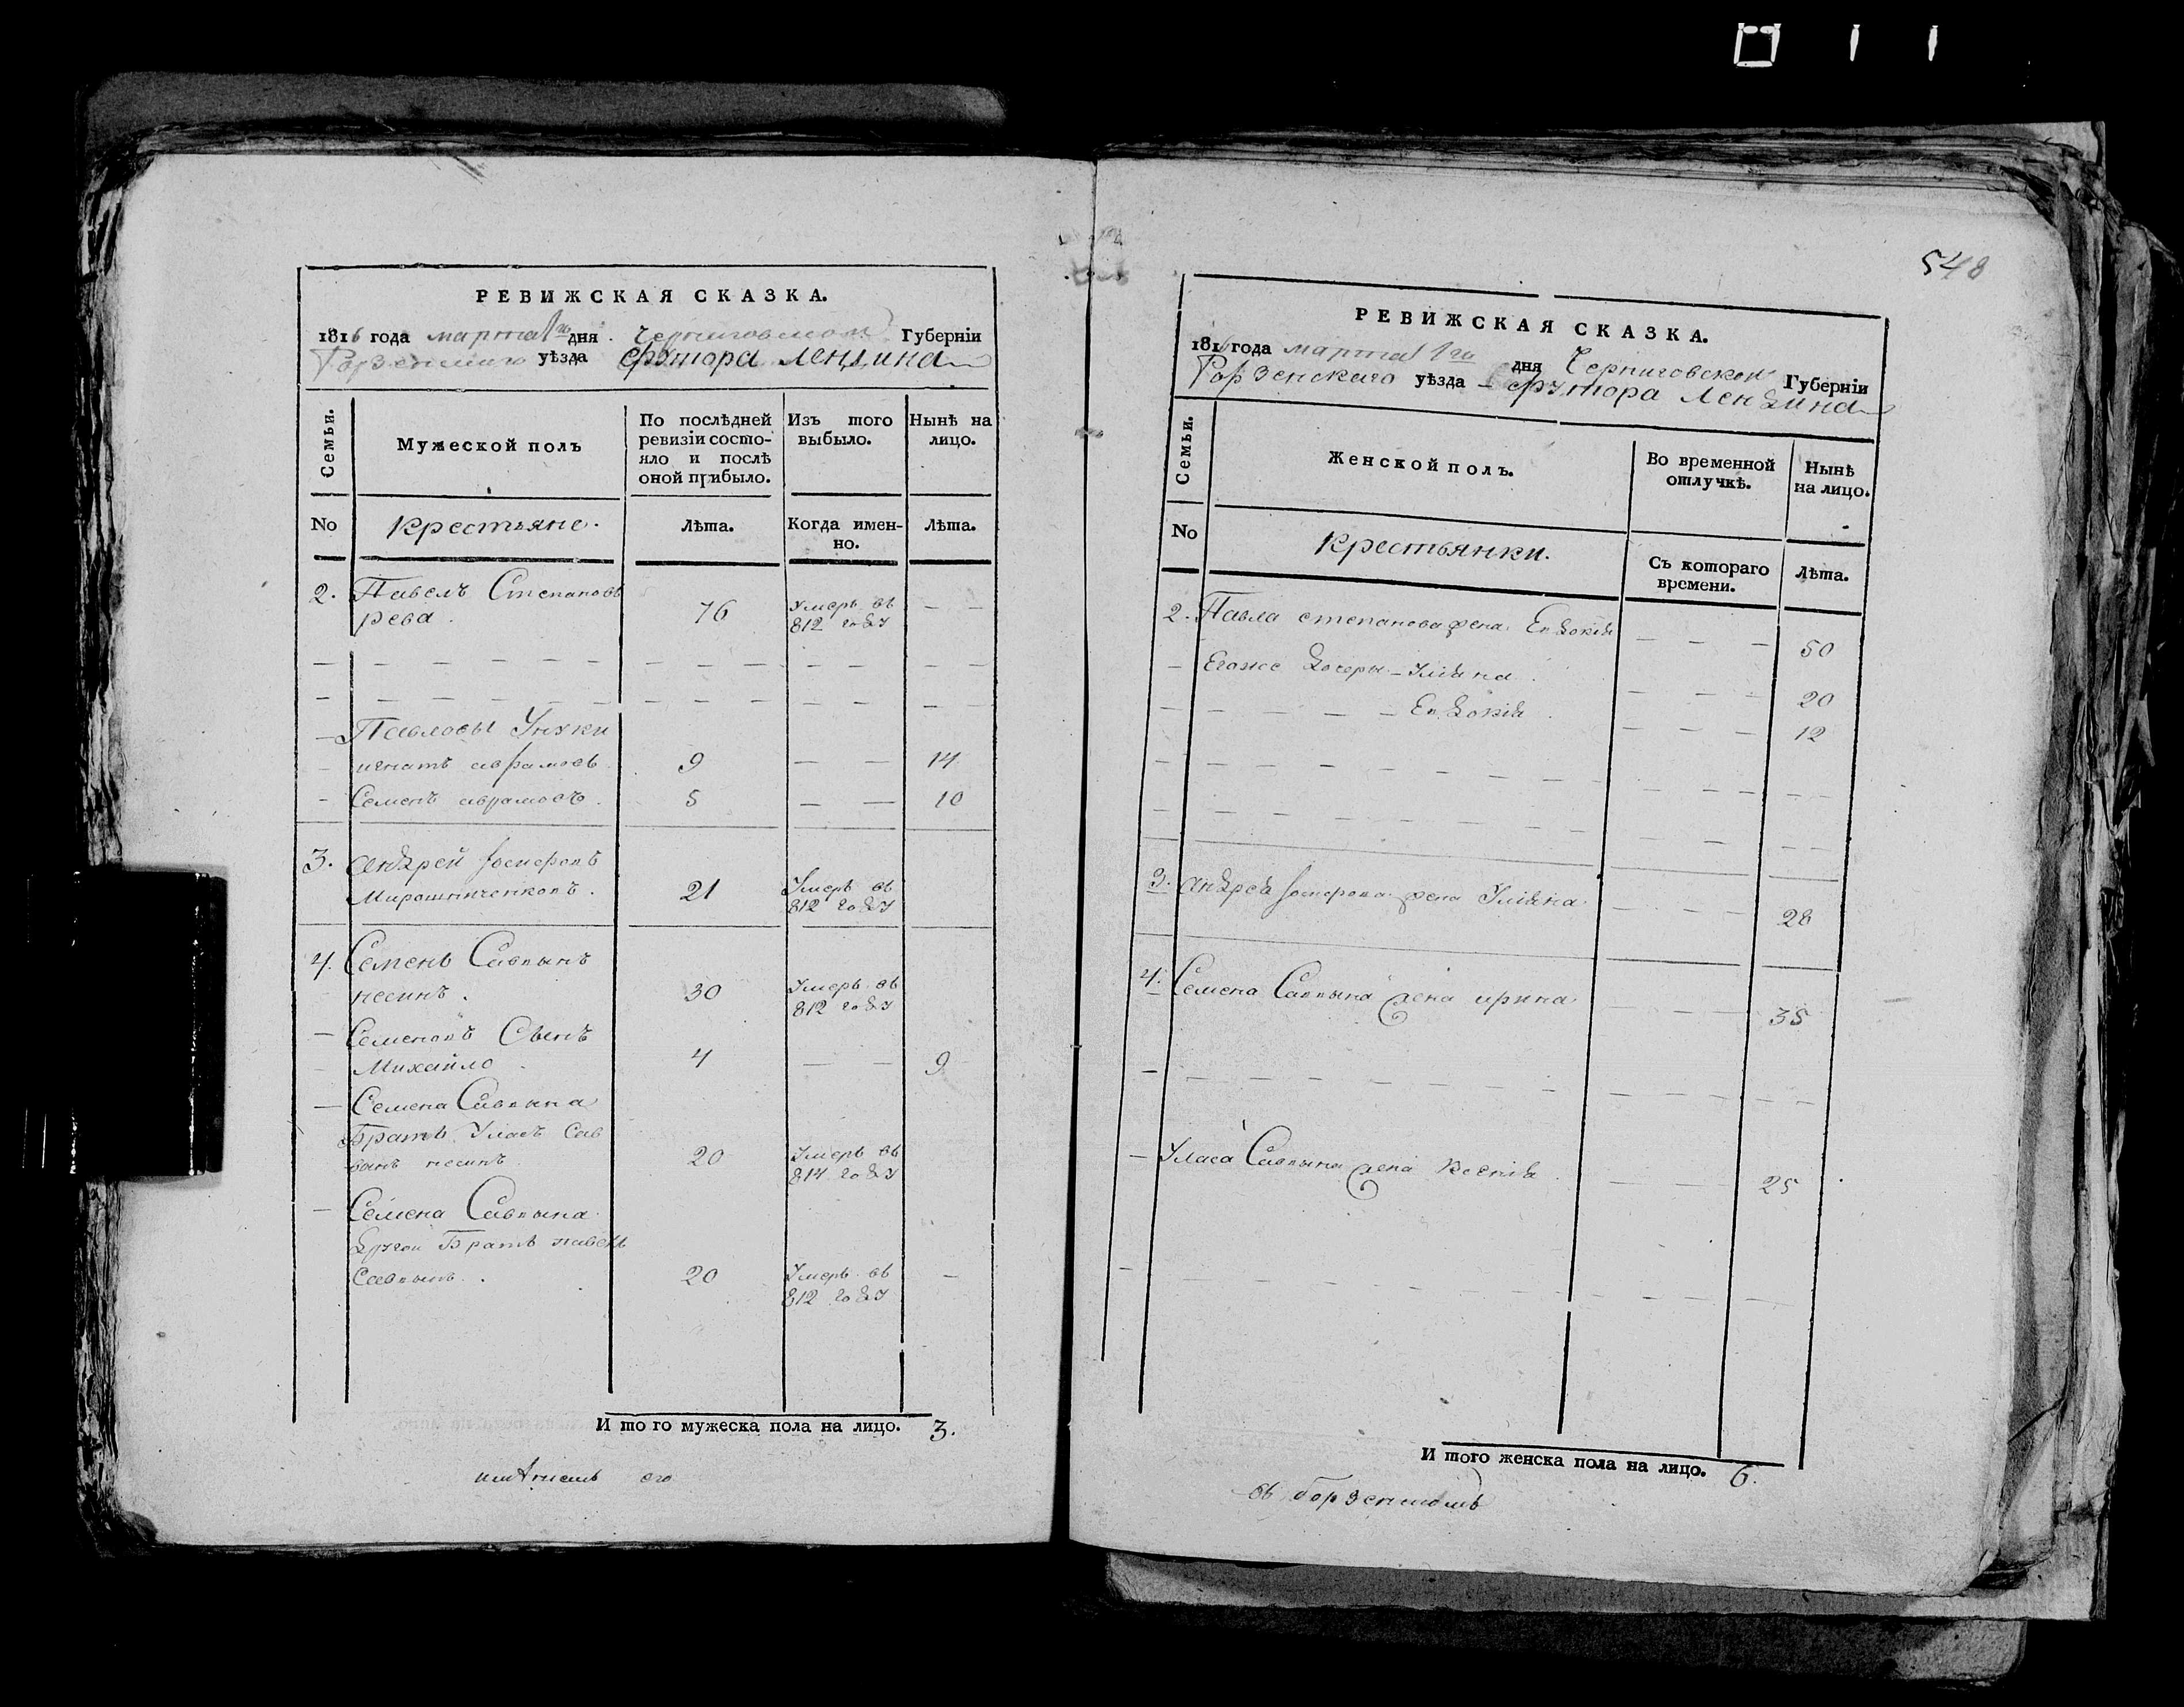 548
РЕВИЖСКАЯ СКАЗКА.
1816 года марта 1го дня Черниговской Губерніи
Борзенскаго уѣзда хутора
Семьи.
Мужеской полъ
По послѣдней ревизіи состо-
яло и послѣ
оной прибыло.
Изъ того
выбыло.
Нынѣ на
лицо.
No
Крестьяне.
Лѣта.
Когда имен-
но.
Лѣта.
2. Павелъ Степановъ
рева.
76
Умеръ въ
812 году
— —
Павловы Унуки
игнатъ аврамовъ
9 — — 14
Семенъ аврамовъ.
5 — — 10
3. андрей Іосифовъ
Мирошниченковъ.
21
Умеръ въ
812 году
4. Семенъ Саввынъ
несинъ.
30
Умеръ въ
812 году
— Семеновъ Сынъ
Михайло
4 — — 9
— Семена Саввына
Братъ Уласъ Сав
вынъ несинъ
20
Умеръ въ
814 году
— Семена Саввына
другой Братъ павелъ
Саввынъ.
20
Умеръ въ
812 году
—
И того мужеска пола на лицо. 3.
его
РЕВИЖСКАЯ СКАЗКА.
1816 года марта 1го дня Черниговской Губерніи
Борзенскаго уѣзда хутора
Семьи.
Женской полъ.
Во временной
отлучкѣ.
Нынѣ
на лицо.
No
Крестьянки.
Съ котораго
времени.
Лѣта.
2. Павла степанова жена Евдокія — — 50
— Егоже дочери – Уліяна — — 20
— Евдокія — — — 12
3. андрея Іосифова жена Уліяна — — — 28
4. Семена Саввына жена ирина — — — 35
— Уласа Саввына жена Ксенія — — 25
И того женска пола на лицо. 6.
въ борзенскомъ